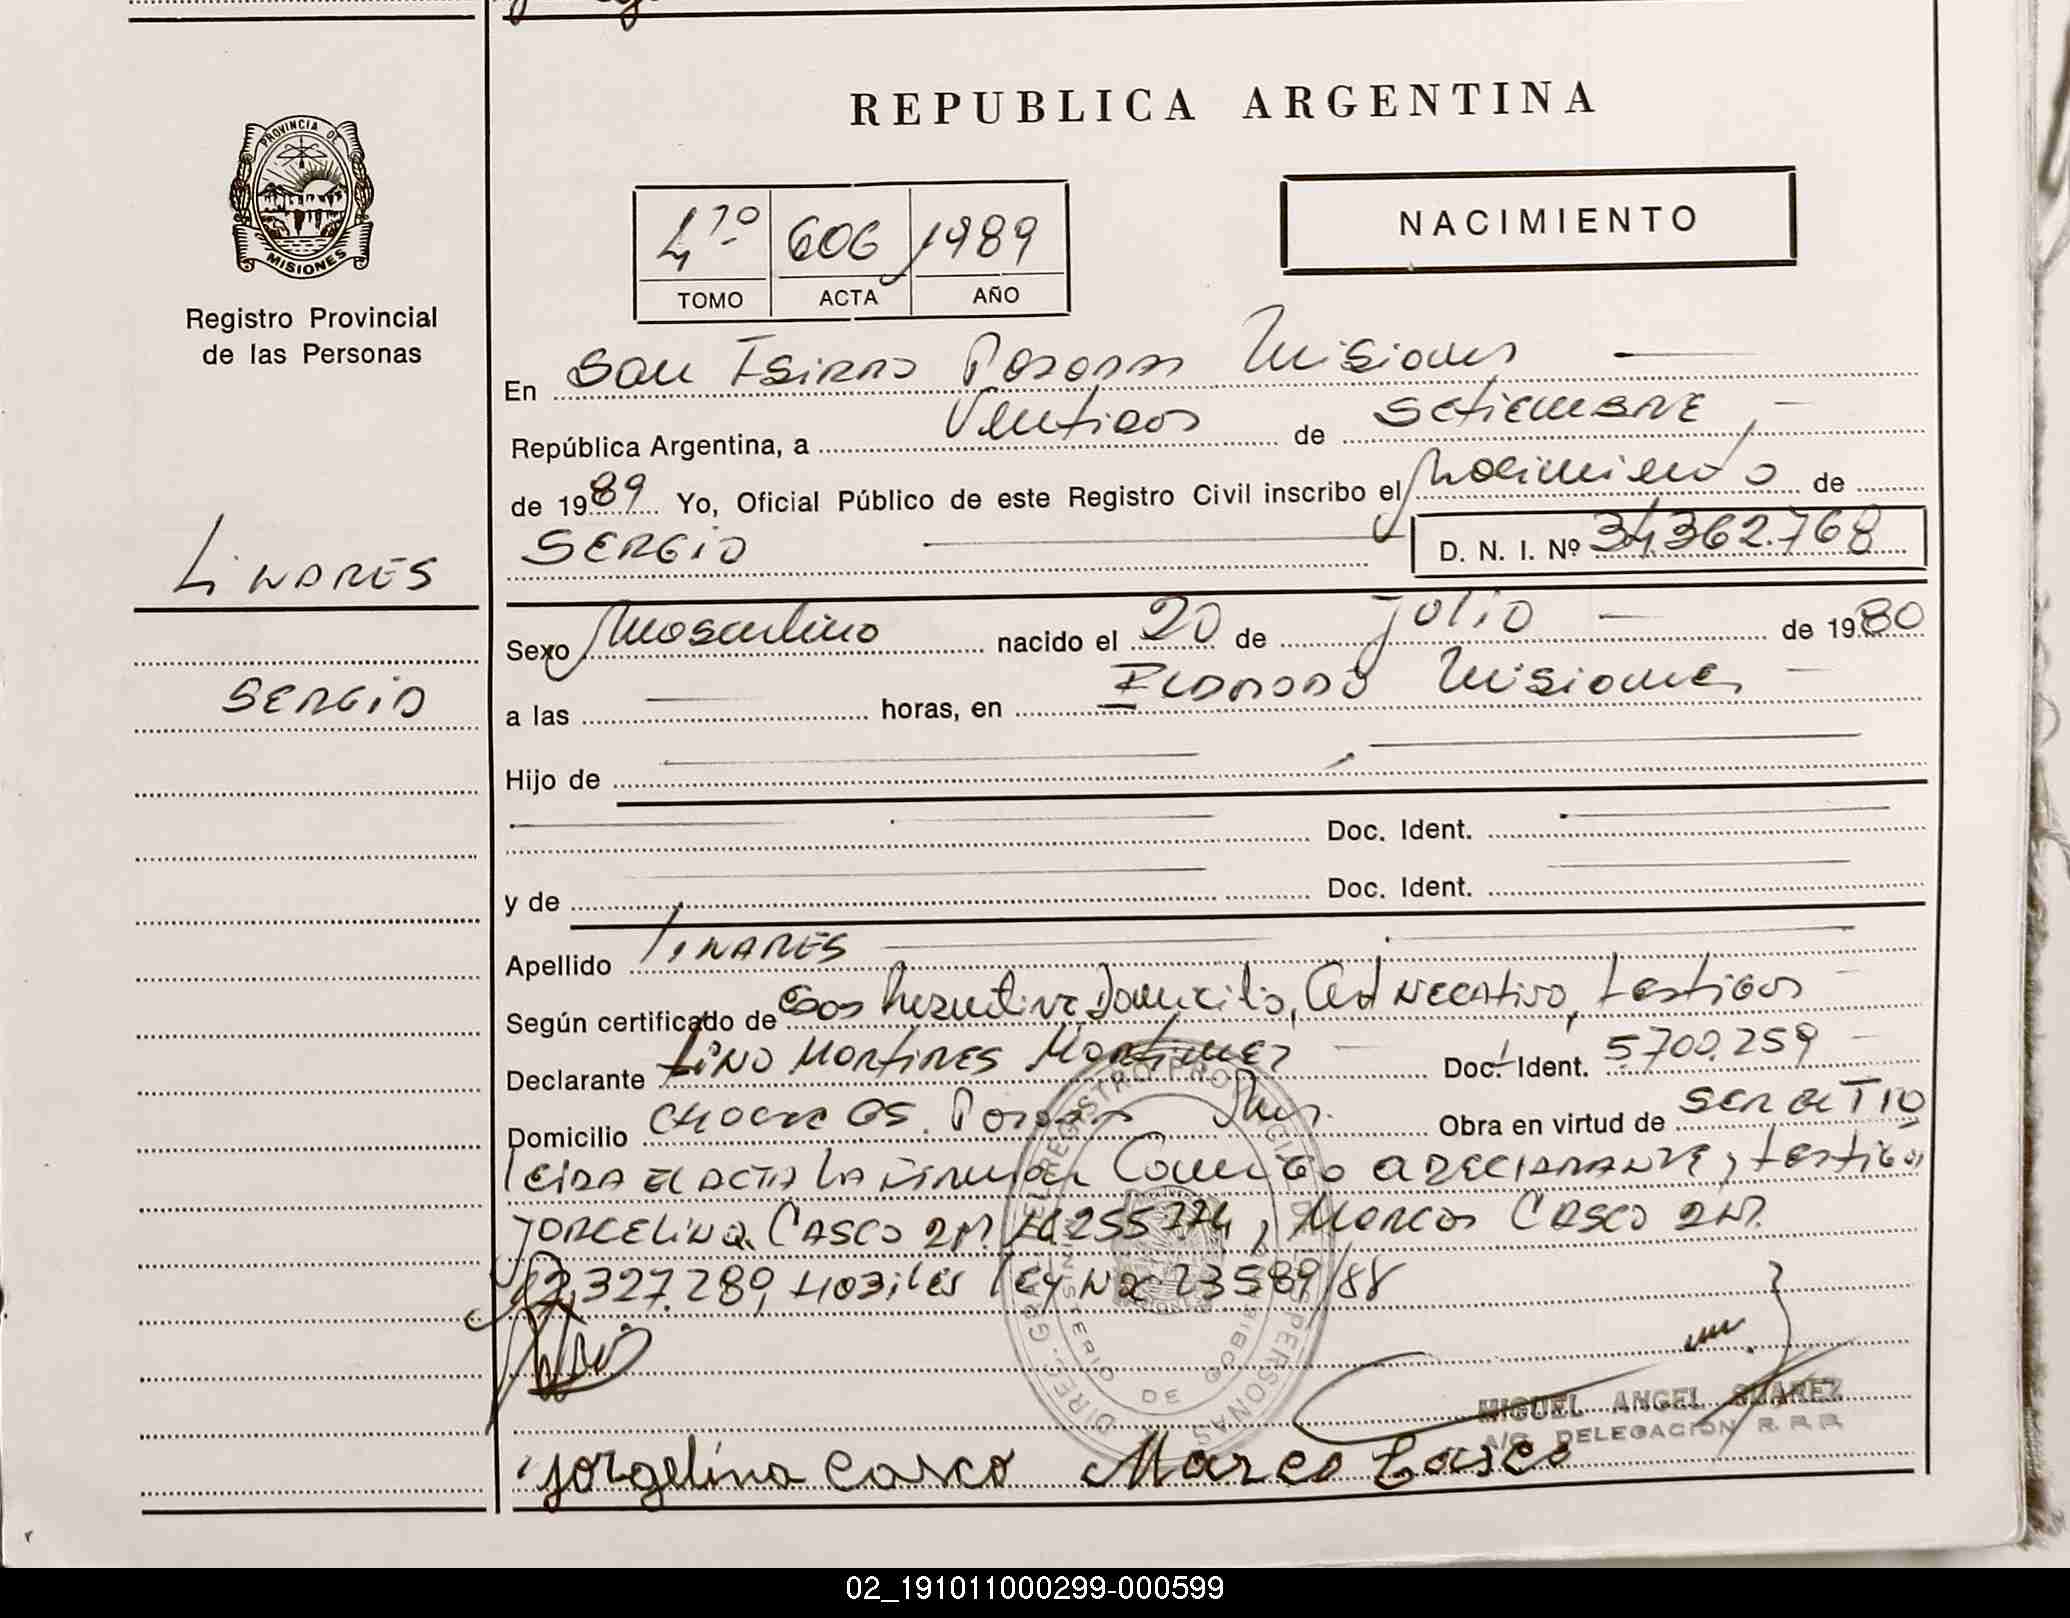 REPUBLICA ARGENTINA
PROVINCIA DE
MISIONES
Registro Provincial
de las Personas
4to 606 1989
TOMO ACTA AÑO
NACIMIENTO
En San Isidro Posadas Misiones
República Argentina, a Ventidos de Setiembre
de 1989 Yo, Oficial Público de este Registro Civil inscribo el Nacimiento de
SERGIO D. N. I. Nº 34.362.768
LINARES
Sexo Masculino nacido el 20 de Julio de 1980
SERGIO
a las horas, en ELDORADO Misiones
Hijo de
Doc. Ident.
y de Doc. Ident.
Apellido LINARES
Según certificado de Domicilio, NEGATIVO, testigos
Declarante LINO Martires Martinez Doc. Ident. 5.700.259
Domicilio Posadas Mnes. Obra en virtud de
LEIDA EL ACTA LA FIRMAN Conmigo DECLARANTE, testigos
JORGELINA CASCO DNI. 255774, Marcos CASCO DNI.
12,327.289, LEY Nac 23589/88
DIREC. GRAL. DEL REGISTRO PROVINCIAL DE LAS PERSONAS
MINISTERIO DE GOBIERNO
MIGUEL ANGEL SUAREZ
A/C DELEGACION R. P. P.
Jorgelina Casco Marco Casco
02_191011000299-000599